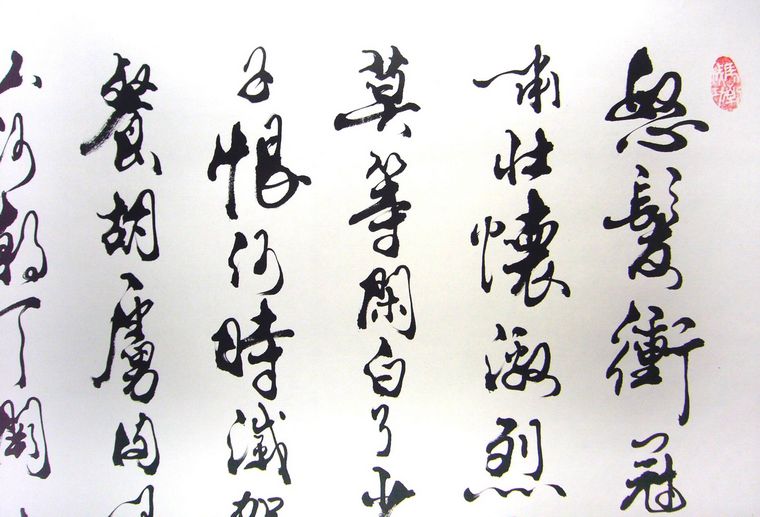 怒髮衝冠
嘯壯懷激烈
莫等閑白了少
子恨何時滅駕
餐胡虜肉
山河朝天闕